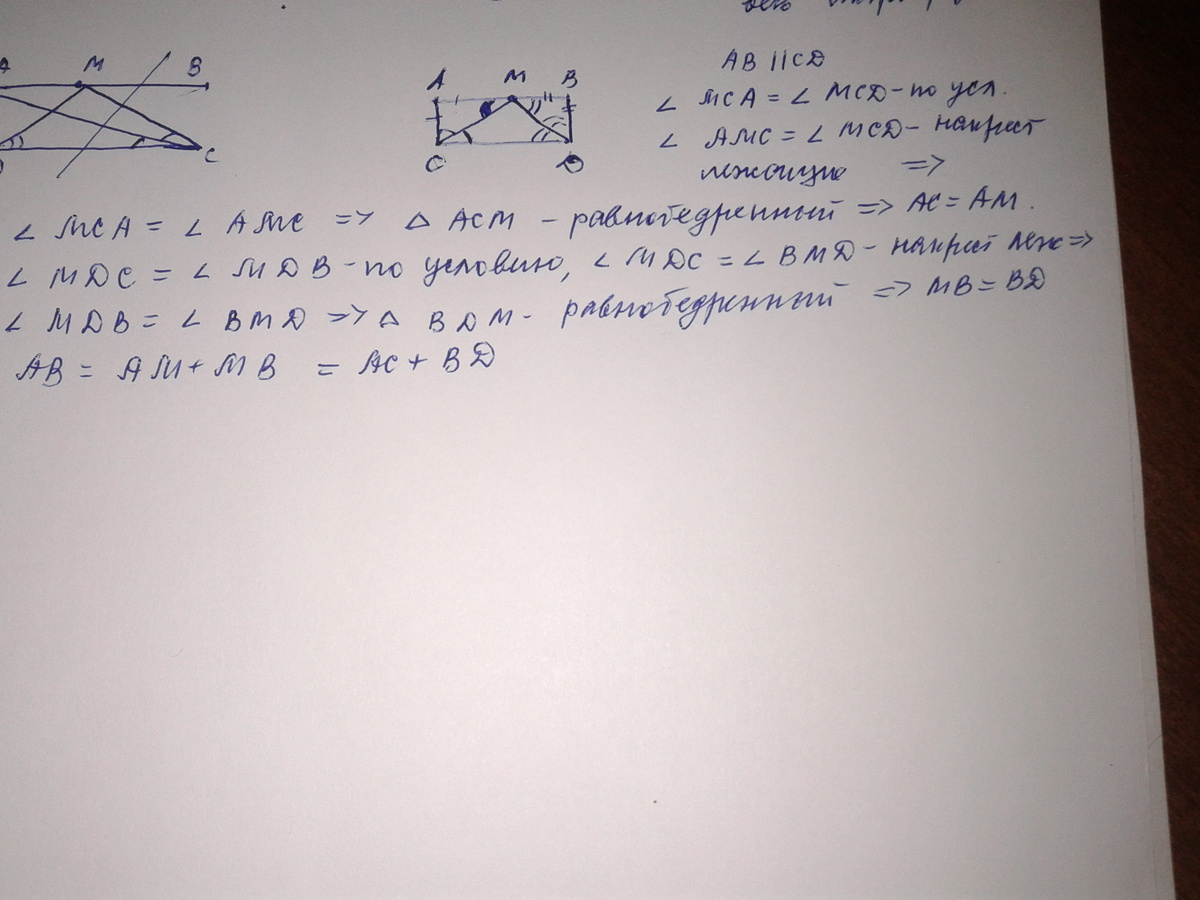 A M B
C
A M B
C D
AB || CD
∠ MCA = ∠ MCD - по усл.
∠ AMC = ∠ MCD - накрест
лежащие =>
∠ MCA = ∠ AMC => △ ACM - равнобедренный => AC = AM.
∠ MDC = ∠ MDB - по условию, ∠ MDC = ∠ BMD - накрест леж =>
∠ MDB = ∠ BMD => △ BDM - равнобедренный => MB = BD
AB = AM + MB = AC + BD